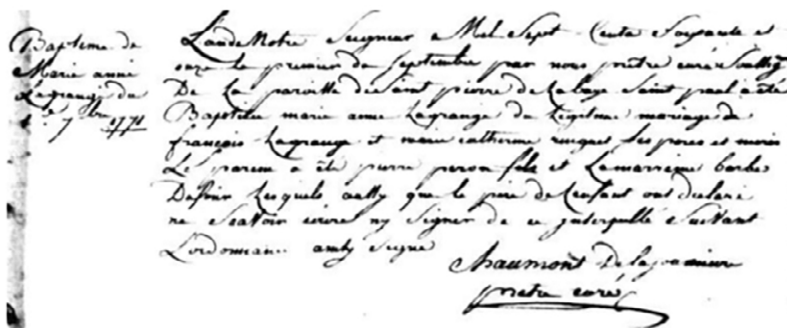 Bapteme de
Marie anne
Lagrange du
1er 7bre 1771
L'an de Notre Seigneur Mil Sept Cents Soixante et
onze le premier de Septembre par nous prêtre curé Soussigné
De La paroisse de Saint pierre de La baye Saint paul a été
Baptisée marie anne Lagrange du Légitime mariage de
françois Lagrange et marie catherine Ses peres et meres
Le parein a été pierre peron fils et La marreine barbe
Dufour Lesquels aussy que le pere de L'enfant ont declaré
ne Scavoir ecrire ny Signer de ce interpellé Suivant
L'ordonnance Signé
Chaumont De la jannière
prêtre curé